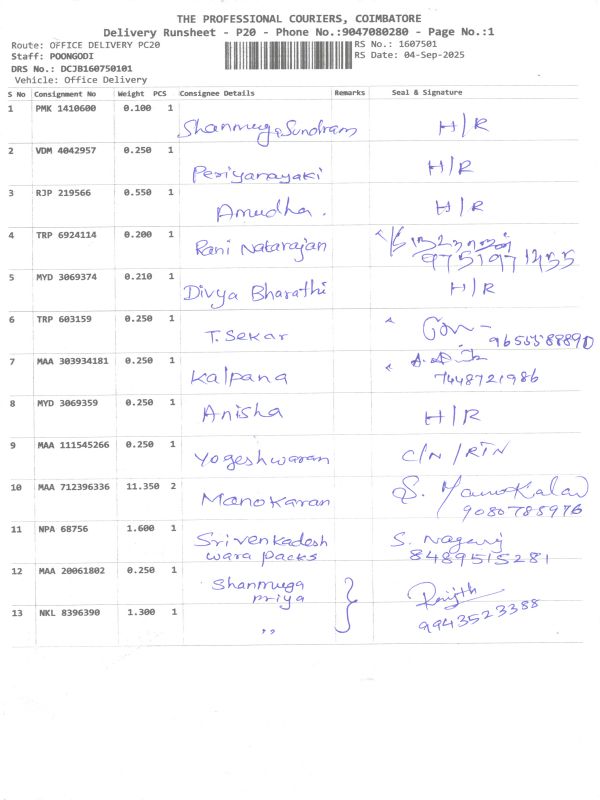 THE PROFESSIONAL COURIERS, COIMBATORE
Delivery Runsheet - P20 - Phone No.:9047080280 - Page No.:1
Route: OFFICE DELIVERY PC20 RS No.: 1607501
Staff: POONGODI RS Date: 04-Sep-2025
DRS No.: DCJB160750101
Vehicle: Office Delivery
S No Consignment No Weight PCS Consignee Details Remarks Seal & Signature
1 PMK 1410600 0.100 1 Shanmuga Sundram H/R
2 VDM 4042957 0.250 1 Periyanayaki H/R
3 RJP 219566 0.550 1 Amudha. H/R
4 TRP 6924114 0.200 1 Rani Natarajan
9751971455
5 MYD 3069374 0.210 1 Divya Bharathi H/R
6 TRP 603159 0.250 1 T. Sekar
9655588890
7 MAA 303934181 0.250 1 Kalpana
7448721986
8 MYD 3069359 0.250 1 Anisha H/R
9 MAA 111545266 0.250 1 Yogeshwaran C/N/RTN
10 MAA 712396336 11.350 2 Manokaran S.
9080785976
11 NPA 68756 1.600 1 Srivenkadesh S. Nagaraj
wara packs 8489515281
12 MAA 20061802 0.250 1 Shanmuga
priya Ranjith
9943523388
13 NKL 8396390 1.300 1 ,,